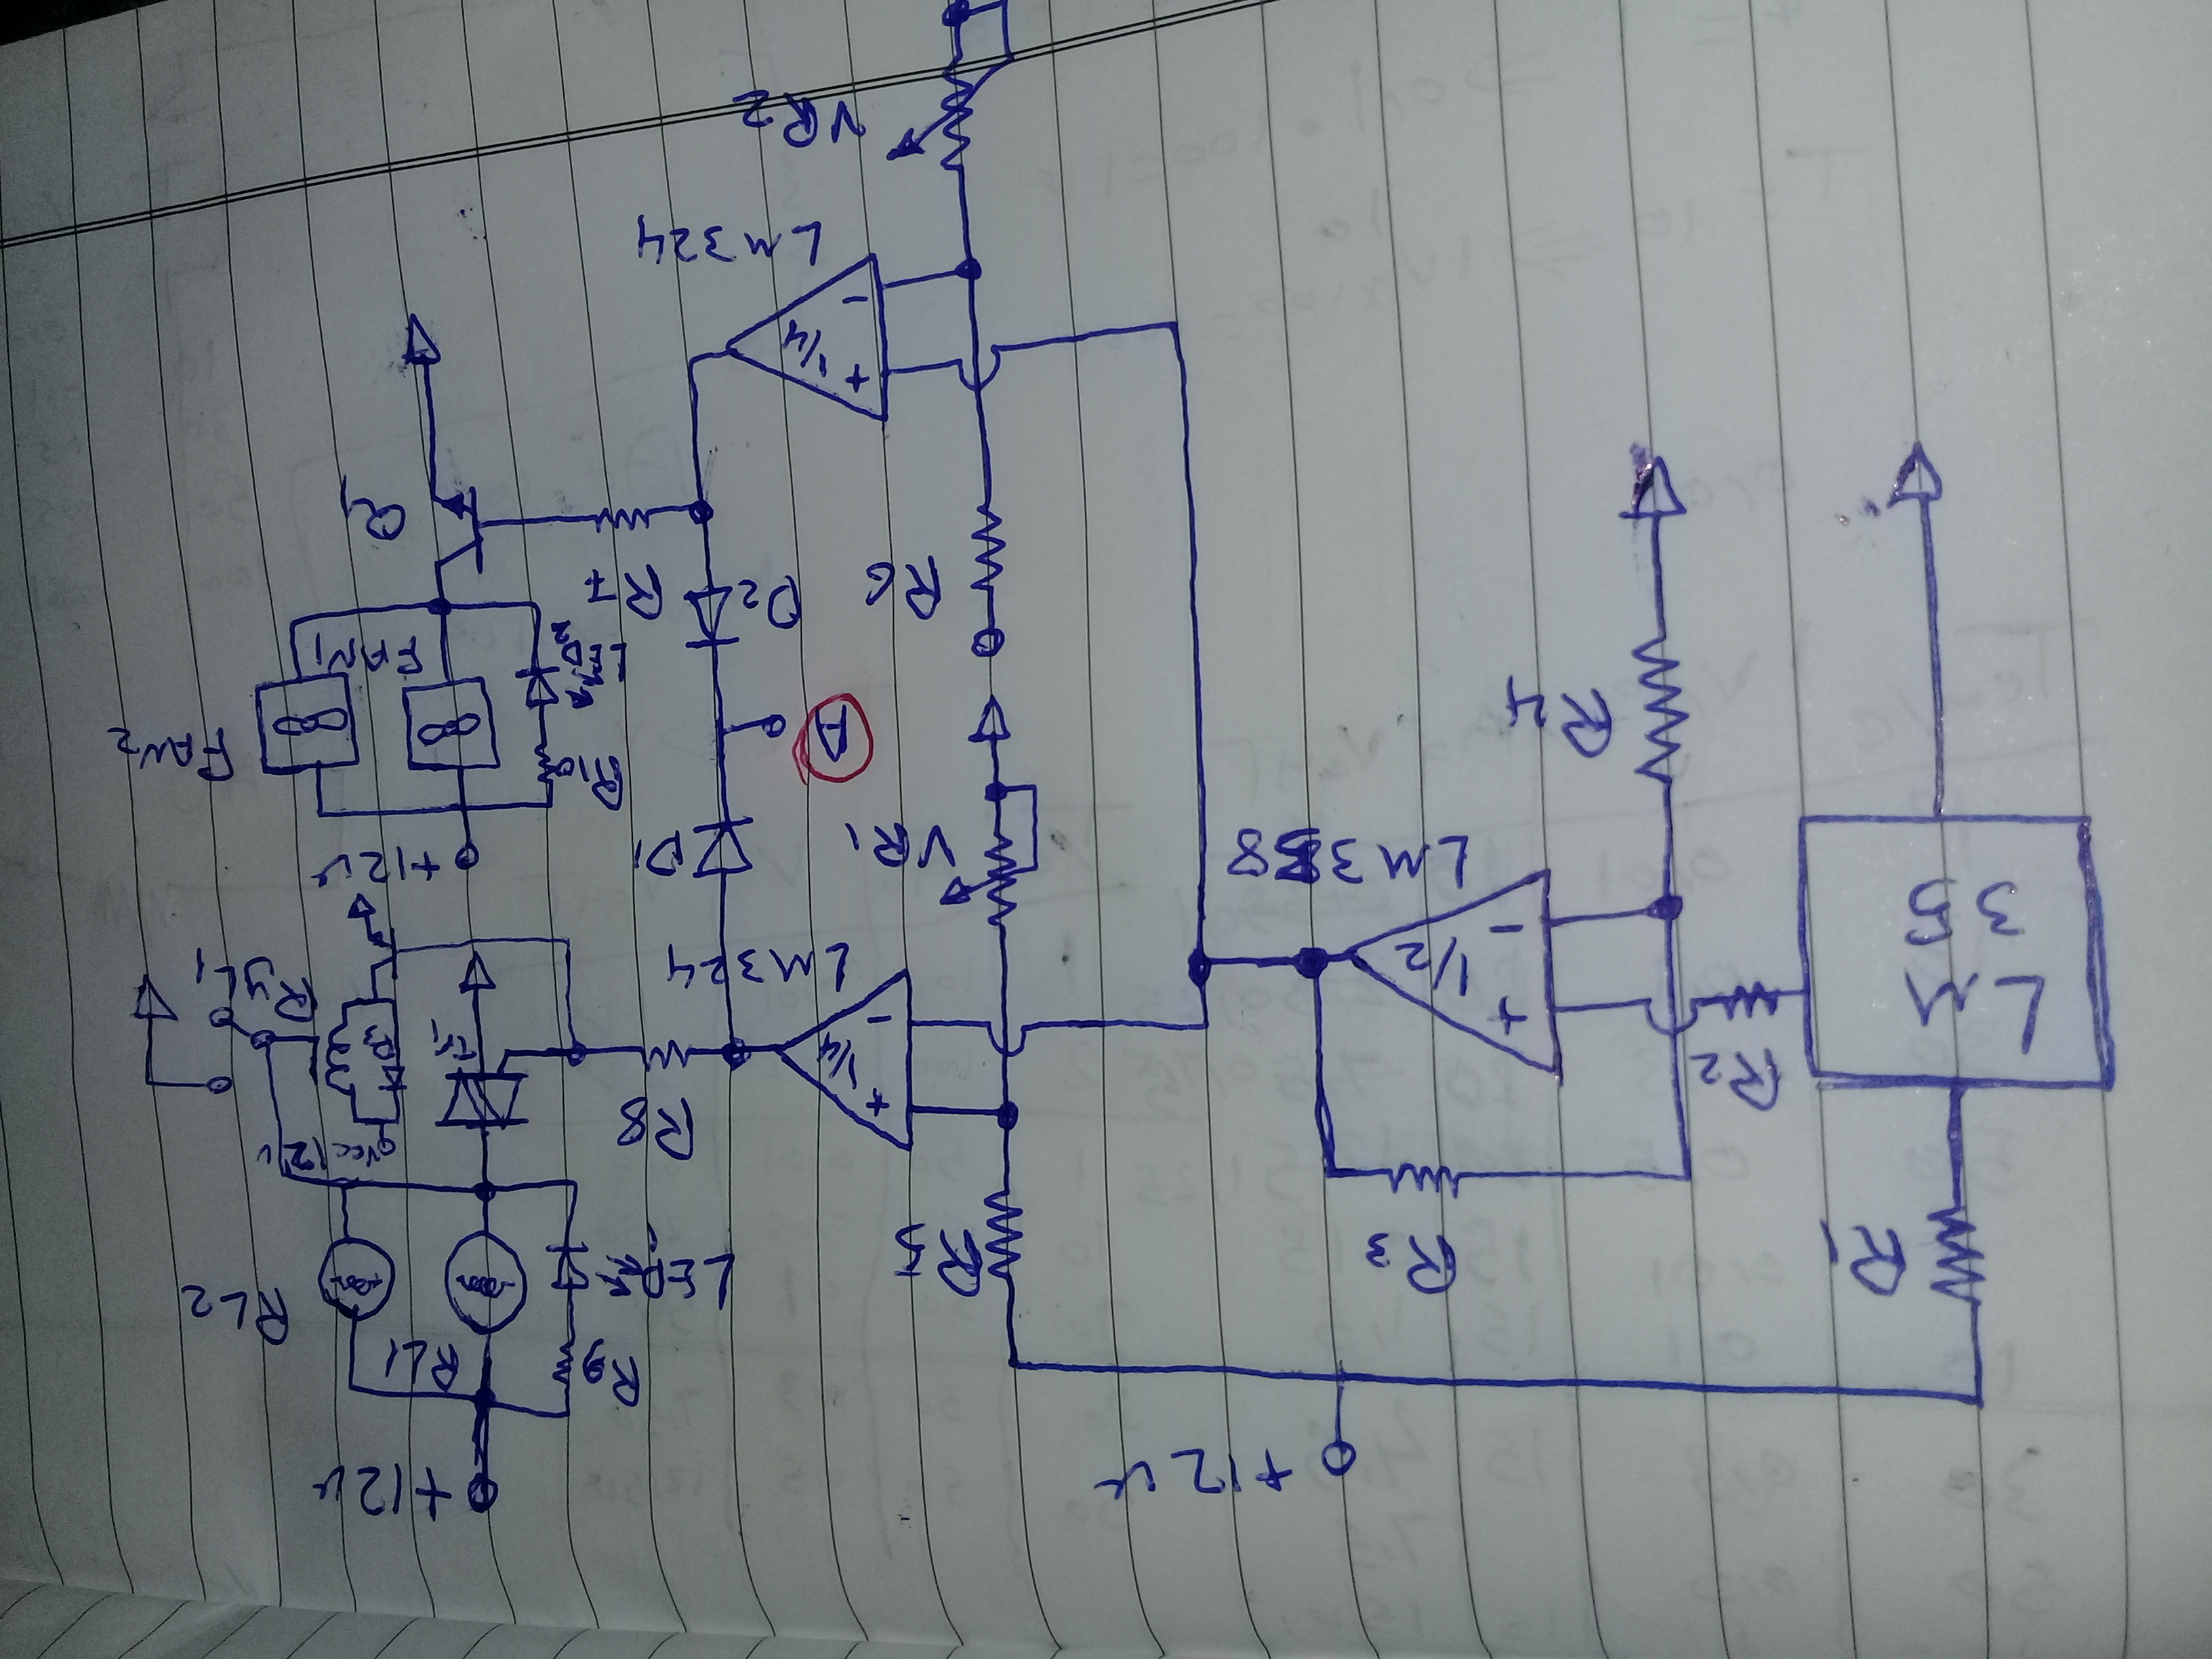 +12v
R1
LM
35
R2
R3
R4
+
-
1/2
LM358
R5
VR1
+
-
1/4
LM324
R6
VR2
+
-
1/4
LM324
D1
A
D2
R8
R7
+12v
R9
LED
RL1
RL2
Vcc 12v
D3
RyL1
+12v
R10
LED
2
FAN1
FAN2
Q1